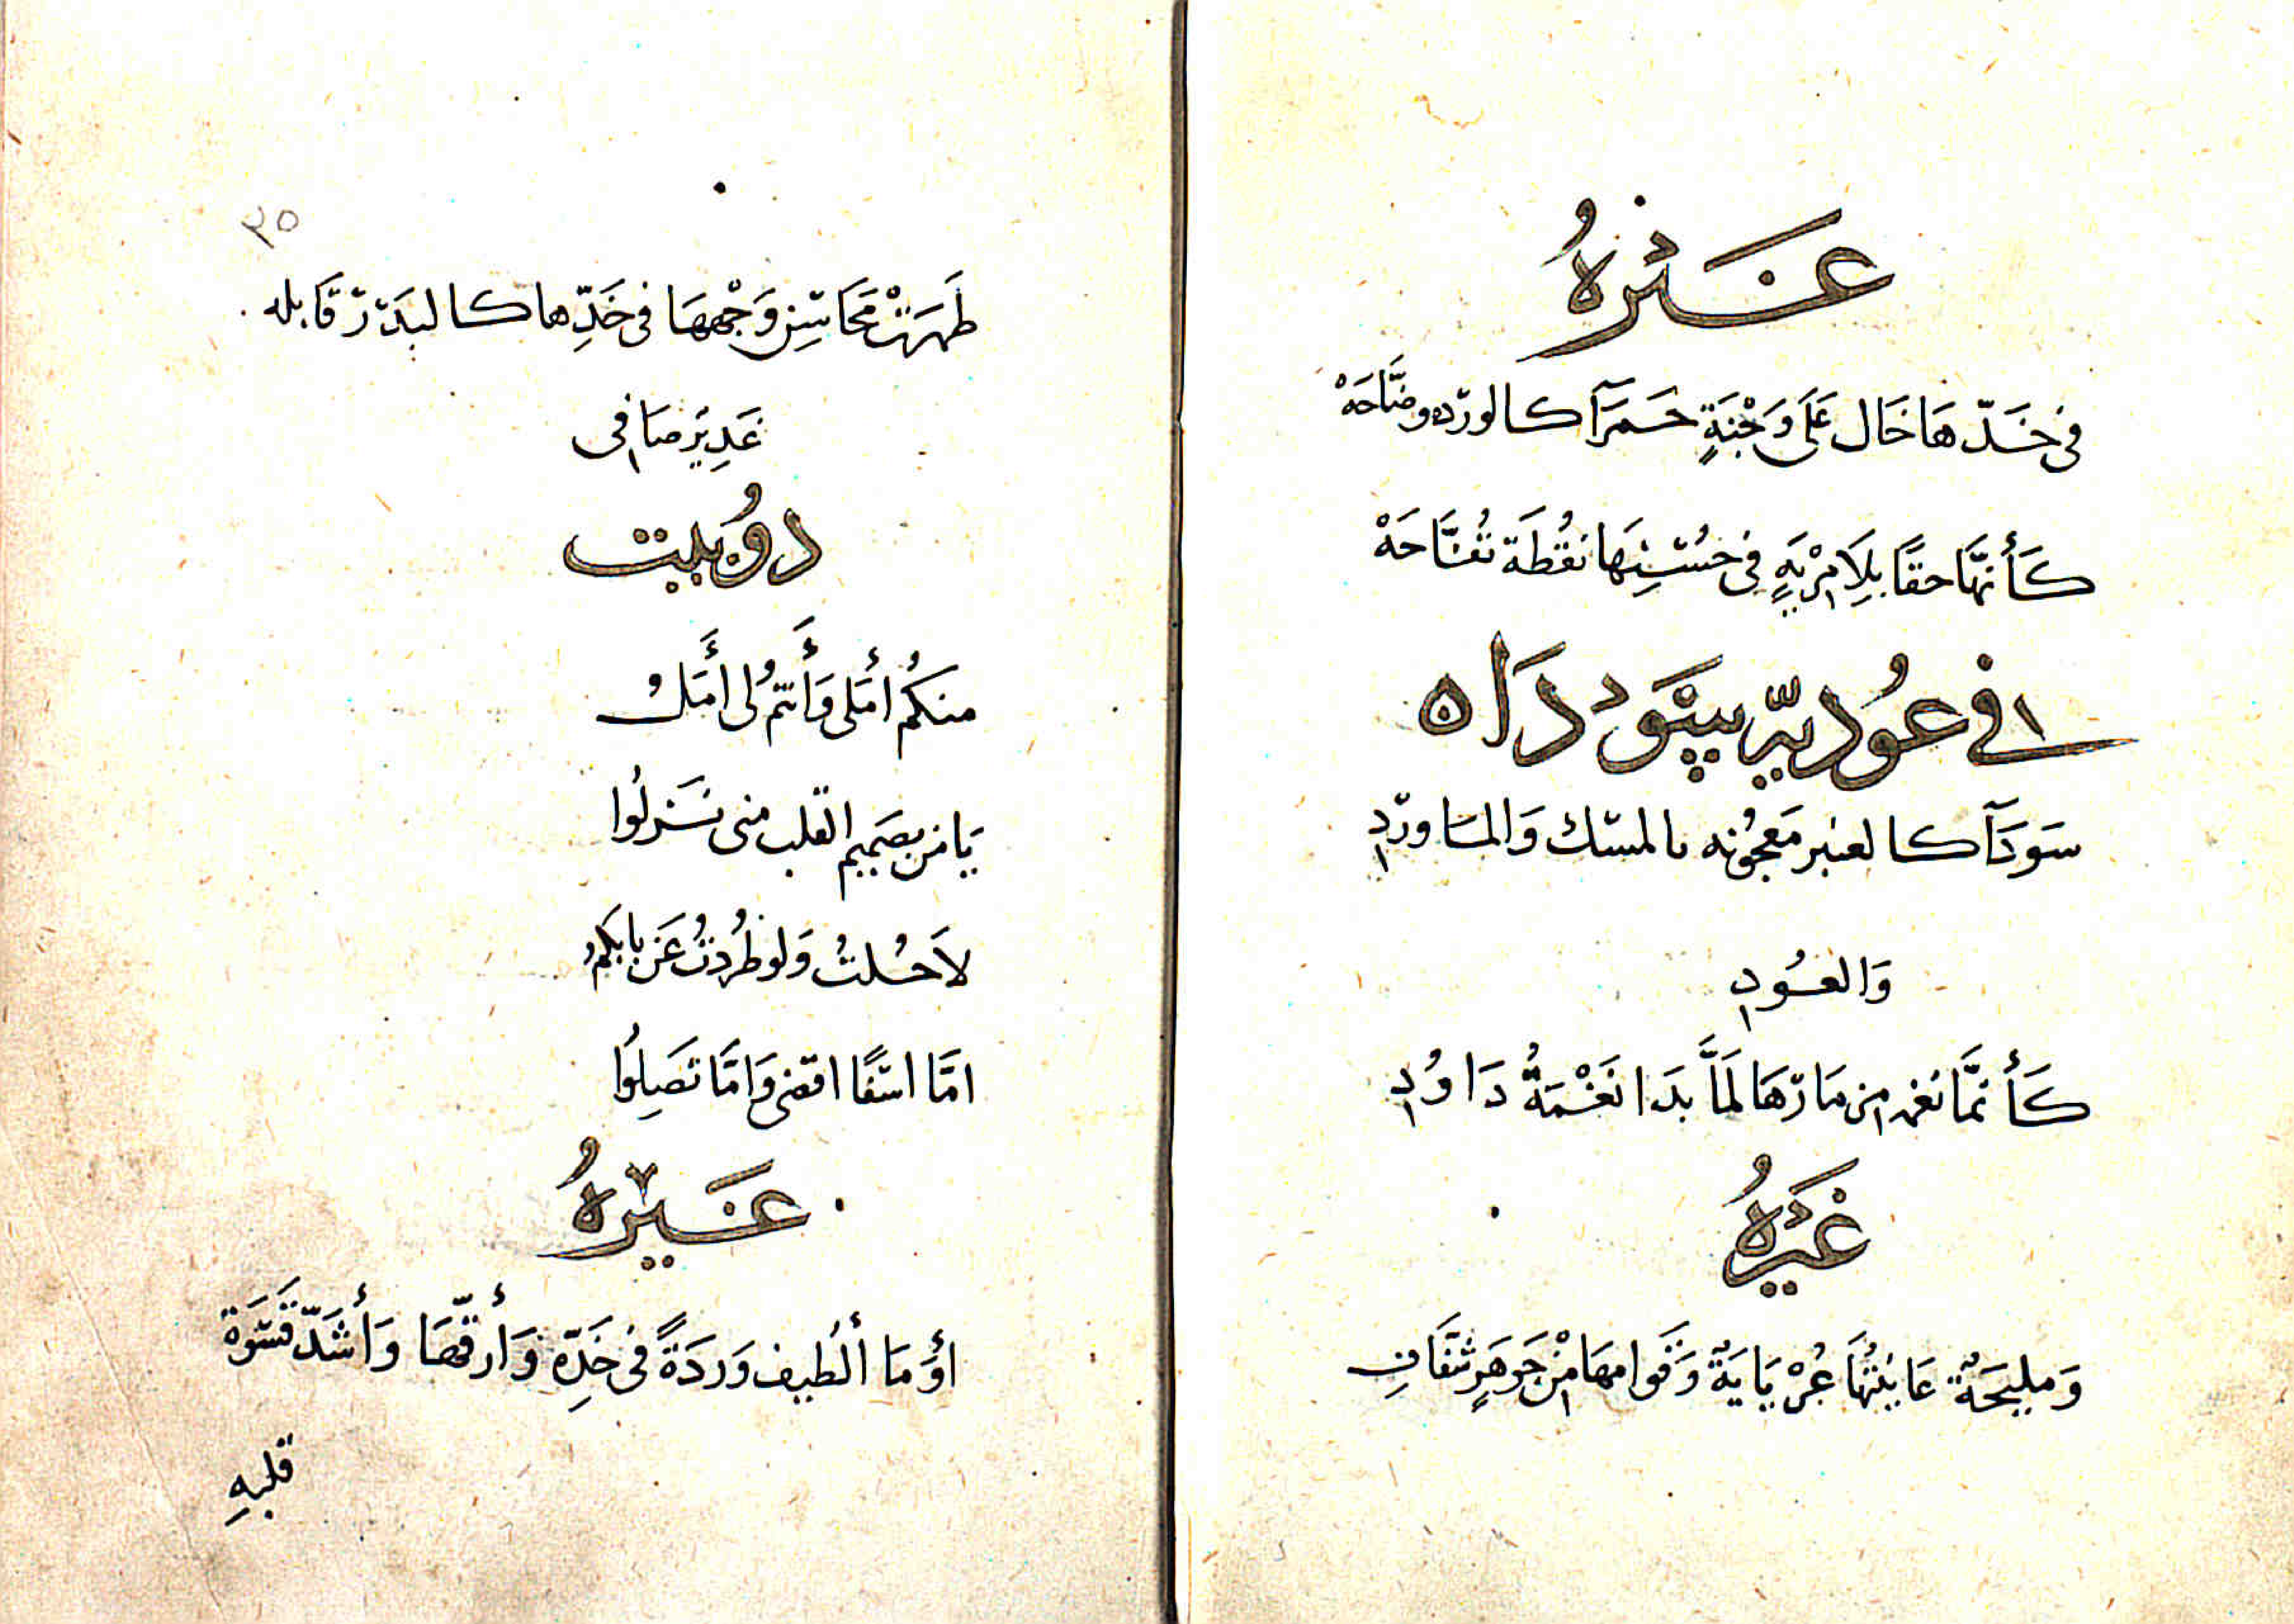 غَيْرُهُ
فى خَدّهَا خَال عَلَى وَجْنَةٍ حَمرَآ كالورّده وضّاحَهْ
كَأنهَّا حقًا بِلاَ مِرْيَةٍ فى حُسْنِهَا نُقُطَة تُفّاحَهْ
فى عُوديّر سَودَاه
سَودَآ كالعنبر مَعجُونه بالمسْك وَالمَاورّدِ
وَالعُودِ
كَأنمَّا نغمة مِن مَارّهَا لمَاَّ بَدَا نَغْمَةُ دَاوُدِ
غَيْرُهُ
وَمليحَةٌ عَاينْتُهَا عُرْيَايَةٌ وَقَوامهَا مِنْ جَوهَرٍ شفَّافِ
٣٥
ظَهرَتْ مَحَاسِن وَجْههَا فى خَدِّها كالبَدْرّ قَابله
غَدِير صَافِى
دُوبيت
منكُمُ أمَلى وَأَنتمُ لى أَمَلُ
يَا مَن بصَميم القلب منى نَزلُوا
لاَ حُلتُ وَلو طُردتُ عَن بابكمُ
امَّا اسَفًا اقضى وَامَّا تَصِلُوا
غَيْرُهُ
اوَمَا ألطيف وَردَةً فى خَدِّه وَأرقّهَا وَأشَدّ قَسْوَة
قلبهِ